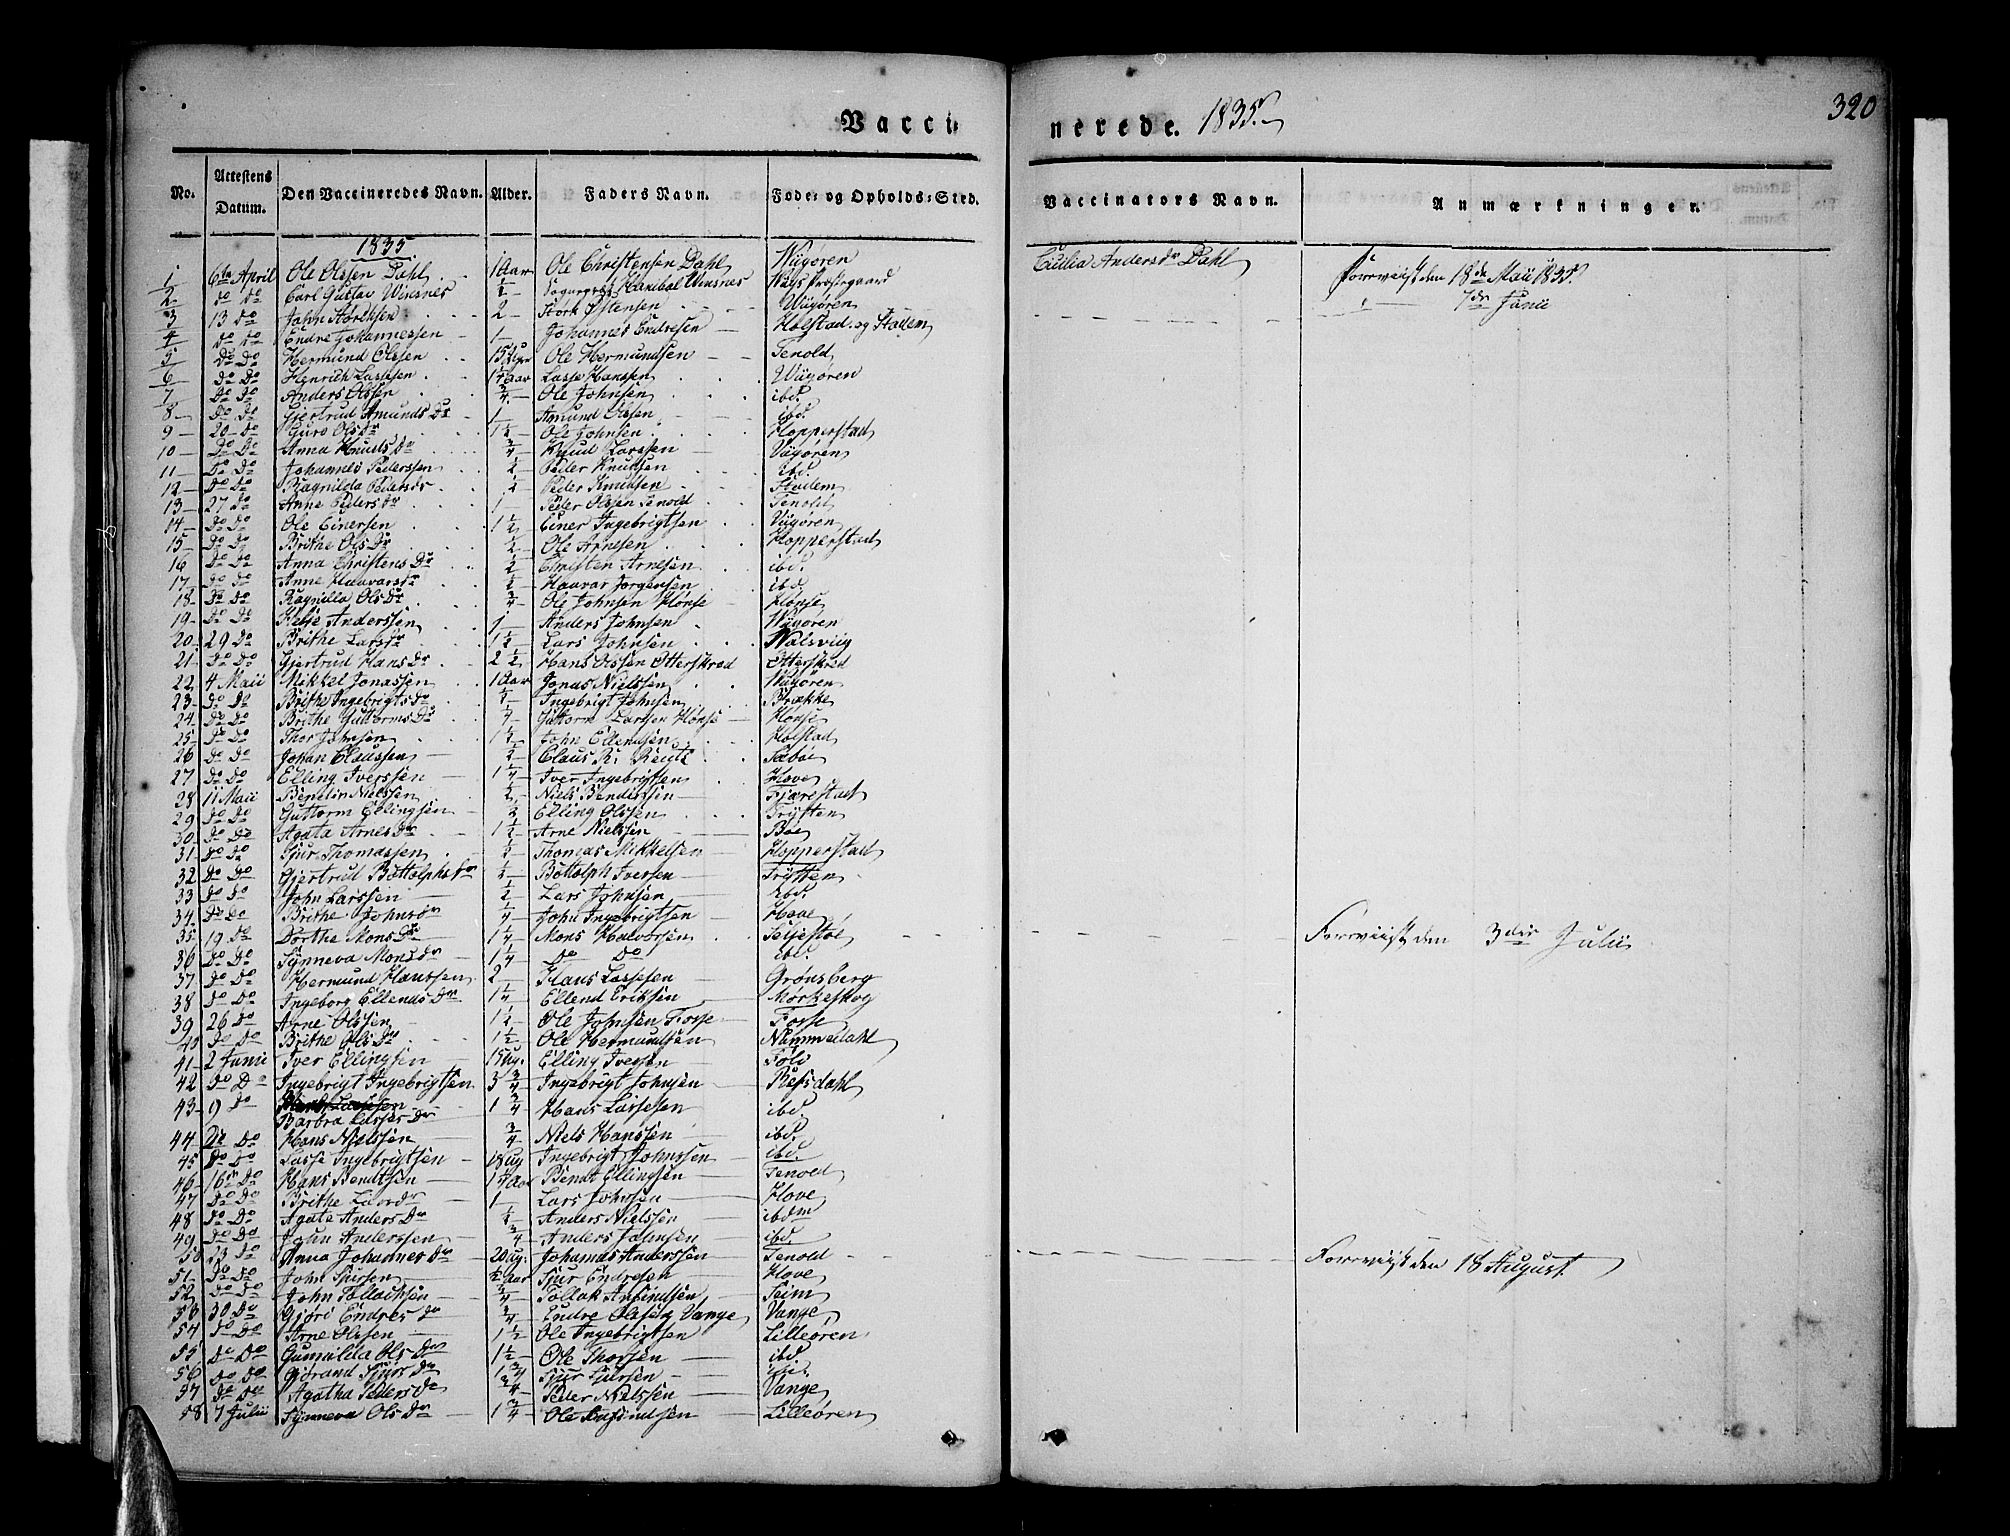 320
Vaccinerede. 1835.
No. Attestens Datum. Den Vaccineredes Navn. Alder. Faders Navn. Føde- og Opholds-Sted. Vaccinators Navn. Anmærkninger.
1835
1 6te April Ole Olssen Dahl 1 Aar Ole Christensen Dahl Wiigøren Cecilia Andersdr Dahl Foreviist den 18de Maii 1835.
2 do do Carl Gustav Winsnes 1/2 Hanibal Winsnes Wiigs Præstegaard 7de Junii
3 13 do John Størksen 2 Størk Østensen Wiigøren
4 do do Endre Johannessen 1 Johannes Endresen Holstad og Stadem
5 Do Do Hermund Olssen 15 Uger Ole Hermundsen Tenold
6 Do Do Henrich Lassesen Lasse Hanssen Wiigøren
7 Do Do Anders Olssen 3/4 Ole Johnsen ibd.
8 Do Do Gjertrud Amunds Dr 1 Amund Olssen ibd.
9 20 Do Guro Olsdr 1 1/2 Ole Johnsen Hopperstad
10 Do Do Anna Knuds Dr 3/4 Knud Larssen Viigøren
11 Do Do Johannes Pederssen 1/2 Peder Knudsen ibd.
12 Do Do Ragnilda Pedersdr 1/2 Peder Knudsen Stadem
13 27 do Anne Pedersdr 1 Peder Olssen Tenold Tenold
14 Do Do Ole Einersen 1 1/2 Einer Ingebrigtsen Viigøren
15 Do Do Brithe Olsdr 1/2 Ole Arnesen Hopperstad
16 Do Do Anna Christens Dr 1/2 Christen Arnesen ibd.
17 Do Do Anne Haavarsdr 1/2 Haavar Jørgensen ibd.
18 Do Do Ragnilla Ols Dr 3/4 Ole Johnsen Hønse Hønse
19 Do Do Helje Anderssen 1 Anders Johnsen Wiigøren
20 29 Do Brithe Larsdr Lars Johnsen Nalsviig
21 Do Do Gjertrud Hans Dr 2 1/2 Hans Olssen Otterskred Otterskred
22 4 Maii Mikkel Jonassen 1 Aar Jonas Nielssen Wiigøren
23 Do Do Brithe Ingebrigts Dr Ingebrigt Johnsen Brække
24 Do Do Brithe Guttorms Dr Guttorm Larssen Hønse Hønse
25 Do Do Thor Johnsen John Ellendsen Holstad
26 Do Do Johan Claussen 1/2 Claus R. Sæbøe
27 Do Do Elling Iverssen 1 1/4 Iver Ingebrigtsen Hove
28 11 Maii Nielssen 1/2 Niels Bendixsen Fjærestad
29 Do Do Guttorm Ellingsen 2 Elling Olssen Frÿtten
30 Do Do Agata Arnes Dr 1 1/2 Arne Nielssen Bøe
31 Do Do Sjur Thomassen 1/2 Thomas Mikkelsen Hopperstad
32 Do Do Gjertrud Bottolphs Dr 1/2 Bottolph Iversen Frÿtten
33 Do Do John Larssen 1/2 Lars Johnsen ibd.
34 Do Do Brithe Johnsdr John Ingebrigtsen Hove
35 19 Do Dorthe Mons Dr 1 1/4 Mons Halvorsen Foreviist den 3die Julii
36 Do Do Sÿnneva Mons dr 1 1/4 Do Do ibd.
37 Do Do Hermund Hanssen 2 Hans Lassesen Grønsberg
38 Do Do Ingeborg Ellends Dr 1 1/4 Ellend Eriksen Mørkeskog
39 26 Do Arne Olssen 1 1/2 Ole Johnsen Fosse Fosse
40 Do Do Brithe Ols Dr 1 1/2 Ole Hermundsen Nummedahl
41 2 Junii Iver Ellingsen 15 Ug. Elling Iversen
42 Do Do Ingebrigt Ingebrigtsen 3 3/4 Ingebrigt Johnsen Refsdahl
43 9 Do Barbra Lasses Dr 1 3/4 Hans Lassesen ibd.
44 Do Do Hans Nielssen 3/4 Niels Hanssen ibd.
45 Do Do Lasse Ingebrigtsen 18 Ug Ingebrigt Johnssen ibd.
46 16 Do Hans Bendtsen Bendt Ellingsen Tenold
47 Do Do Brithe Larsdr 1 Lars Johnsen Hove
48 Do Do Agate Anders Dr Anders Nielssen ibdm
49 Do Do John Anderssen 3/4 Anders Johnsen ibd.
50 23 Do Anna Johannes Dr 20 Ug. Johannes Anderssen Tenold Foreviist den 18 August
51 Do Do John Sjursen 1/2 Aar Sjur Endresen Hove
52 Do Do John Tollachsen 3/4 Tollak Amundsen Seim
53 30 Do Gjøri Endres dr 3/4 Endre Olssen Vange Vange
54 Do Do Arne Olssen 1 1/2 Ole Ingebrigtsen Lilleøren
55 Do Do Gunnilda Ols Dr 1 1/2 Ole Thorsen ibd.
56 Do Do Gjørand Sjurs Dr 1 3/4 Sjur Sjursen ibi.
57 Do Do Agatha Peders Dr 3/4 Peder Nielssen Vange
58 7 Julii Sÿnneva Ols Dr 1 3/4 Ole Amundsen Lilleøren